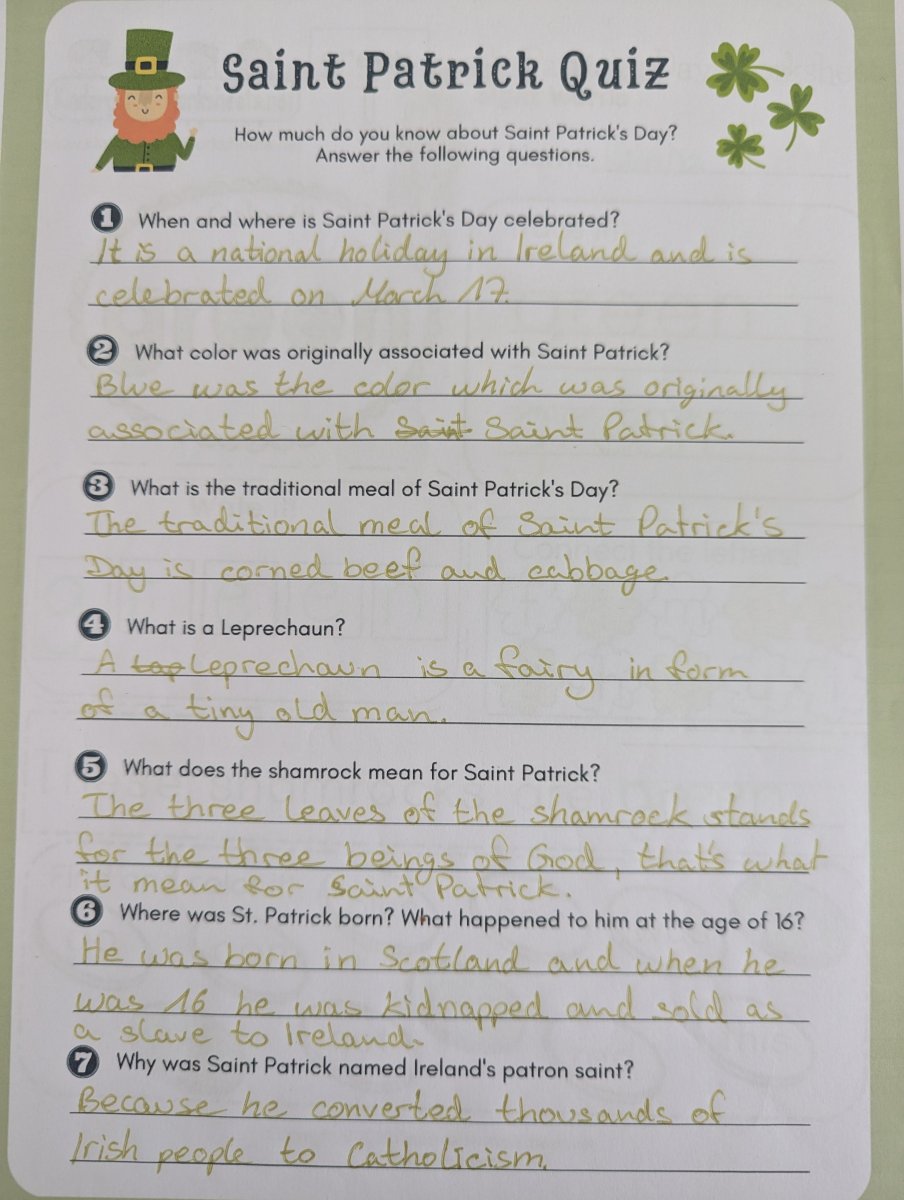 Saint Patrick Quiz
How much do you know about Saint Patrick's Day?
Answer the following questions.
1 When and where is Saint Patrick's Day celebrated?
It is a national holiday in Ireland and is
celebrated on March 17.
2 What color was originally associated with Saint Patrick?
Blue was the color which was originally
associated with Saint Saint Patrick.
3 What is the traditional meal of Saint Patrick's Day?
The traditional meal of Saint Patrick's
Day is corned beef and cabbage.
4 What is a Leprechaun?
A Leprechaun is a fairy in form
of a tiny old man.
5 What does the shamrock mean for Saint Patrick?
The three leaves of the shamrock stands
for the three beings of God, that's what
it mean for Saint Patrick.
6 Where was St. Patrick born? What happened to him at the age of 16?
He was born in Scotland and when he
was 16 he was kidnapped and sold as
a slave to Ireland.
7 Why was Saint Patrick named Ireland's patron saint?
Because he converted thousands of
Irish people to Catholicism.